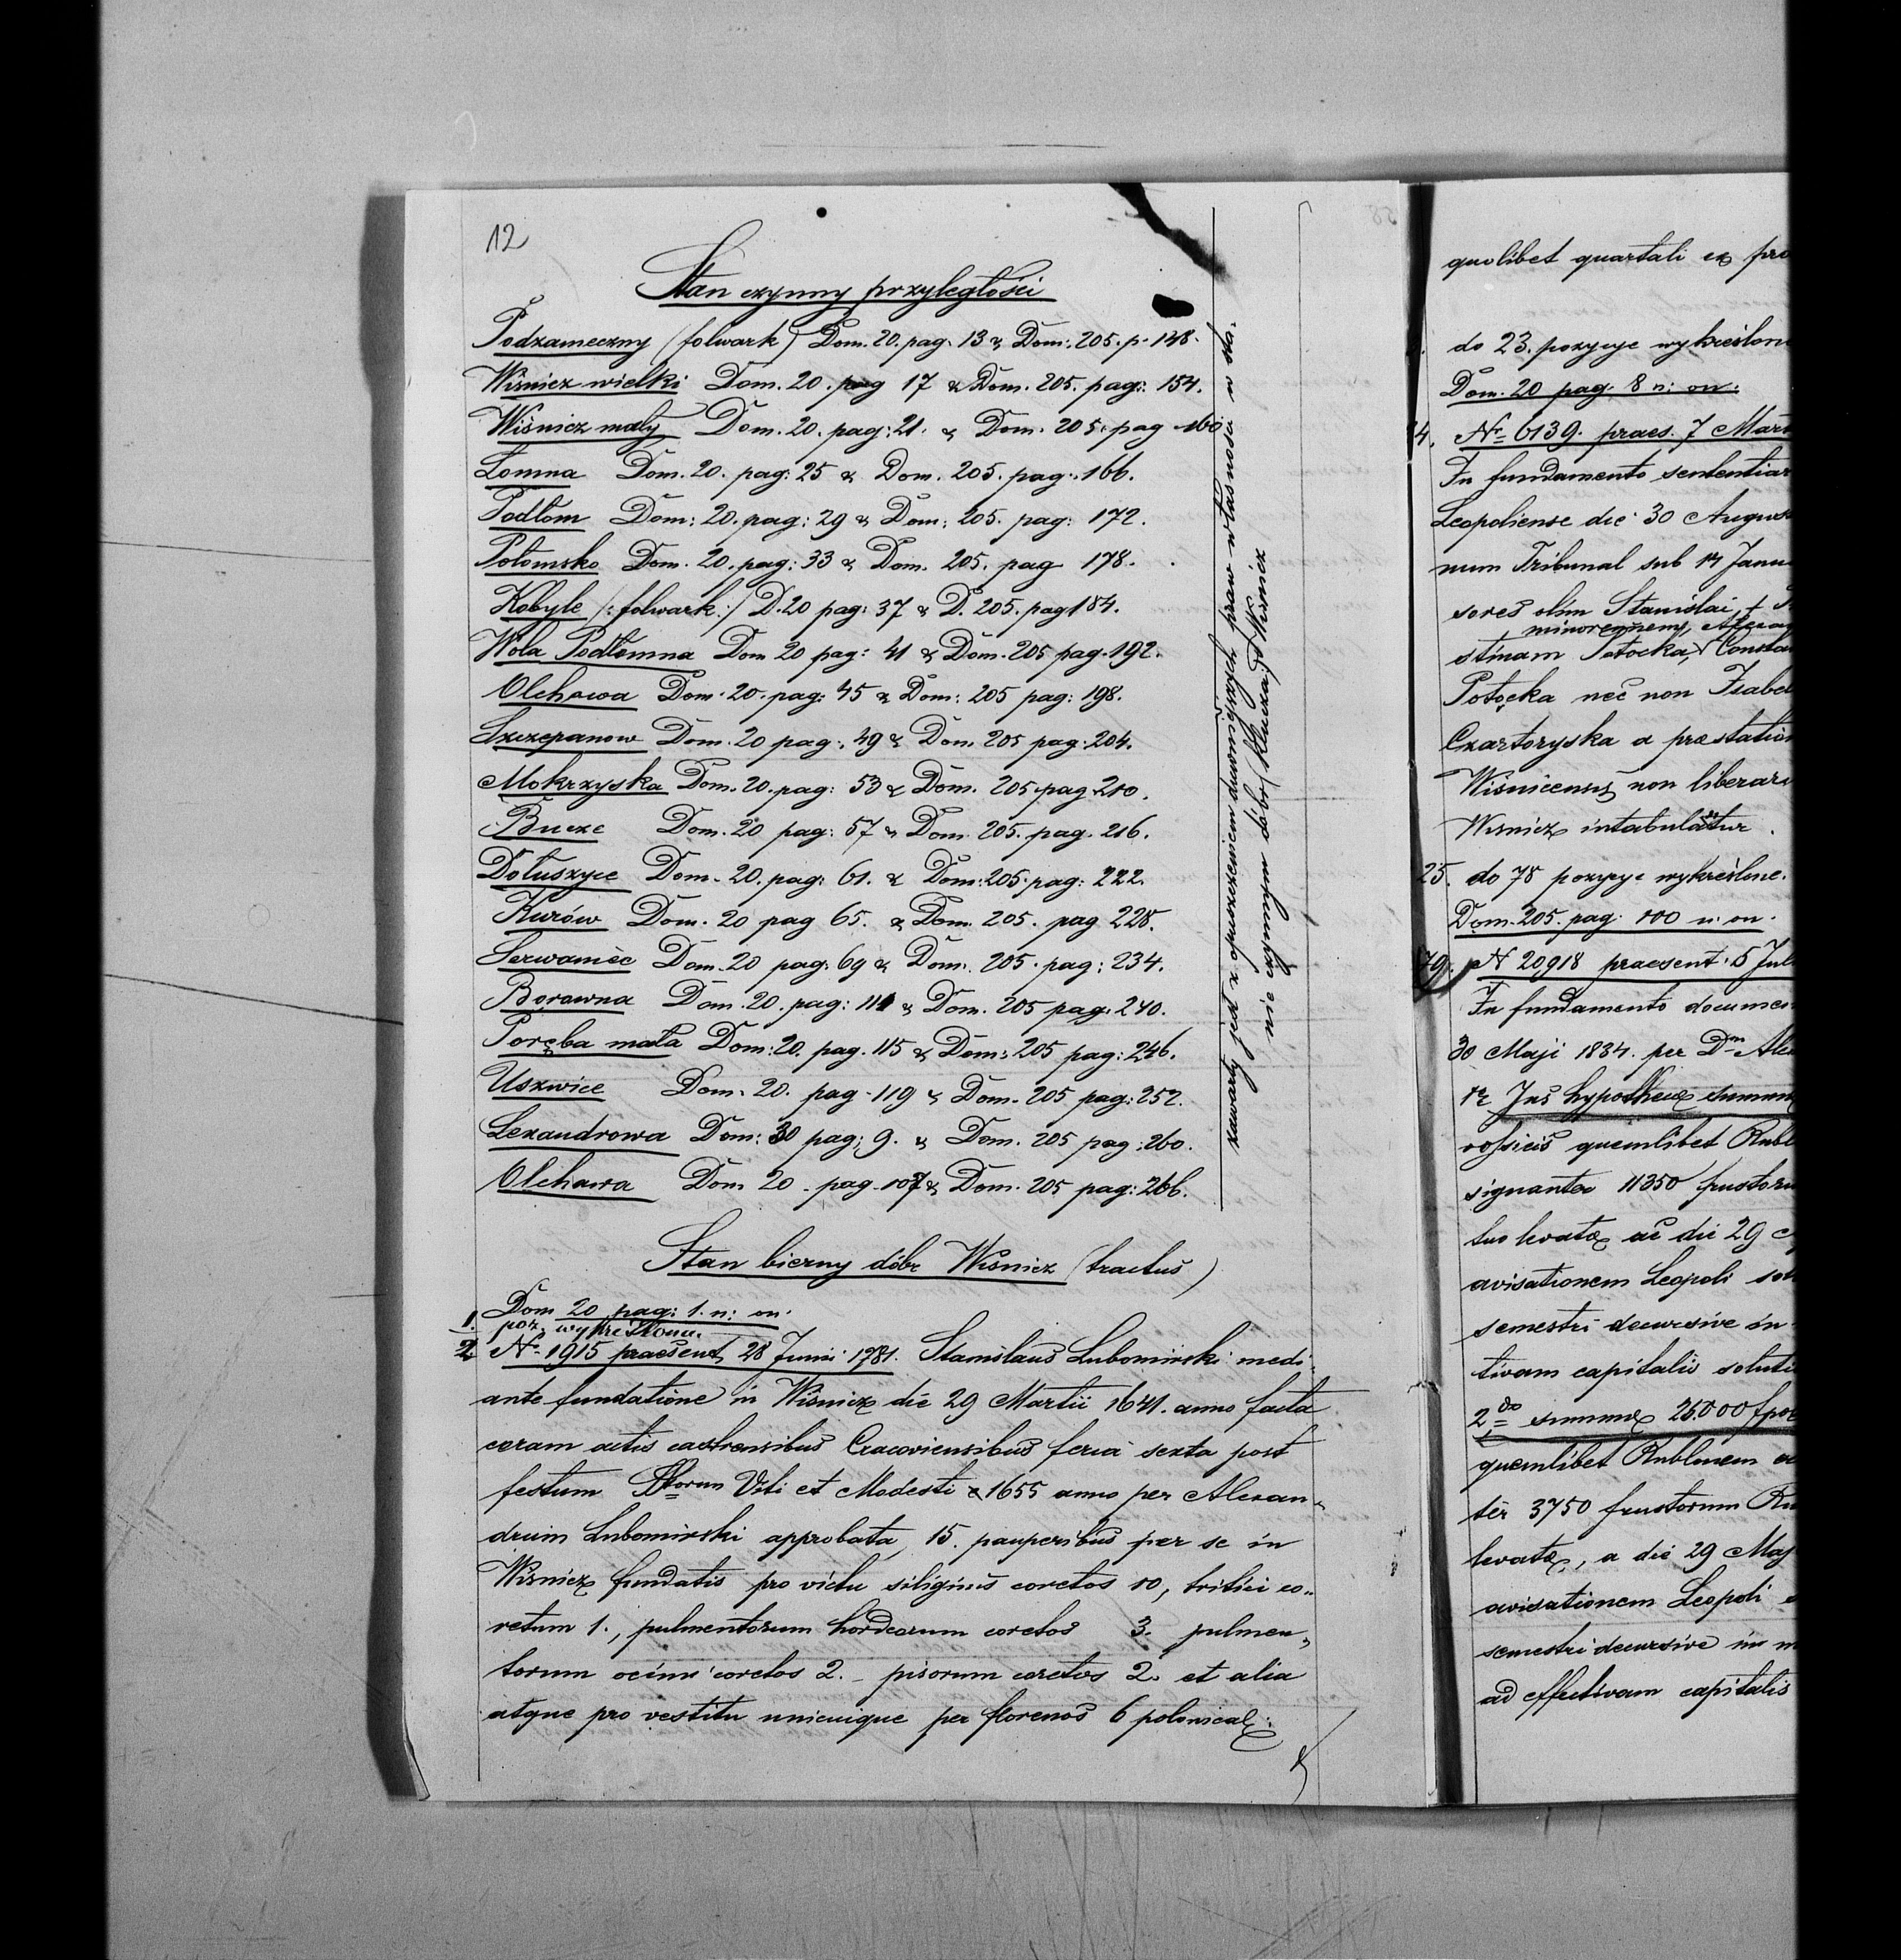 12
Stan czynny przyległości
Podzameczny (folwark) Dom. 20. pag. 13 & Dom: 205. p. 148.
Wiśnicz wielki Dom. 20. pag 17 & Dom. 205. pag: 154.
Wiśnicz mały Dom. 20. pag: 21. & Dom. 205. pag 160
Łomna Dom. 20. pag: 25 & Dom. 205. pag: 166.
Podłom Dom: 20. pag: 29 & Dom: 205. pag: 172.
Połomsko Dom. 20. pag: 33 & Dom. 205. pag 178.
Kobyle /: folwark :/ D. 20 pag: 37 & D. 205. pag 184.
Wola Podłomna Dom 20 pag: 41 & Dom. 205 pag. 192.
Olchawa Dom. 20. pag: 45 & Dom: 205 pag: 198.
Szczepanow Dom. 20 pag: 49 & Dom. 205 pag. 204.
Mokrzyska Dom. 20. pag: 53 & Dom. 205. pag 210.
Bucze Dom. 20 pag: 57 & Dom. 205. pag. 216.
Dołuszyce Dom. 20. pag: 61. & Dom: 205. pag: 222.
Kurów Dom. 20 pag 65. & Dom. 205. pag 228.
Serwaniec Dom. 20 pag: 69 & Dom: 205. pag: 234.
Borowna Dom. 20. pag: 111 & Dom. 205 pag. 240.
Poręba mała Dom: 20. pag. 115 & Dom: 205 pag: 246.
Uszwice Dom. 20. pag. 119 & Dom. 205 pag: 252.
Lexandrowa Dom: 30 pag: 9. & Dom. 205 pag: 260.
Olchawa Dom 20. pag. 107 & Dom. 205 pag: 266.
zawarty jest z opuszczeniem dawniejszych praw własności w sta-
nie czynnym dóbr (Klucza) Wiśnicz
Stan bierny dóbr Wiśnicz (tractus)
Dom 20 pag: 1. n: on.
1. poz. wykreślona.
2 Nr. 1915 praesent. 28 Junii 1781. Stanislaus Lubomirski medi-
ante fundatione in Wiśnicz die 29 Martii 1641. anno facta
coram actis castrensibus Cracoviensibus feria sexta post
festum SStorum Viti et Modesti 1655 anno per Alexan-
drum Lubomirski approbata, 15. pauperibus per se in
Wiśnicz fundatis pro victu siliginis coretos 10, tritici co-
retum 1., pulmentorum hordearum coretos 3. pulmen-
torum ocimi coretos 2. - pisorum coretos 2. et alia
atque pro vestitu unicuique per florenos 6 polonical:
quolibet quartali ex pro
do 23. pozycye wykreślon
Dom. 20 pag. 8 n: on.
4. Nr 6139. praes. 7 Mar
In fundamento sententiar
Leopoliense die 30 Augus
num Tribunal sub 14 Janu
sores olim Stanislai
minorennem,
stinam Potocka, Consta
Potocka nec non Isabel
Czartoryska a praestation
Wiśnicensis non liberar
Wisnicz intabulatur.
25. do 78 pozycye wykreślone.
Dom. 205. pag. 100 n. on.
79. N 20918 praesent. 5 Jul
In fundamento documen
30 Maji 1834. per Dm Alex
Jus hypothecae summ
rossicis quemlibet Rubl
signanter 11350 frustoru
tuo levatae ac die 29
avisationem Leopoli sol
semestri decursive in
tivam capitalis soluti
2do summae 25000 fpol
quemlibet Rublinem
ter 3750 frustorum Ru
levatae, a die 29 Maj
avisationem Leopoli
semestri decursive in m
ad effectivam capitalis